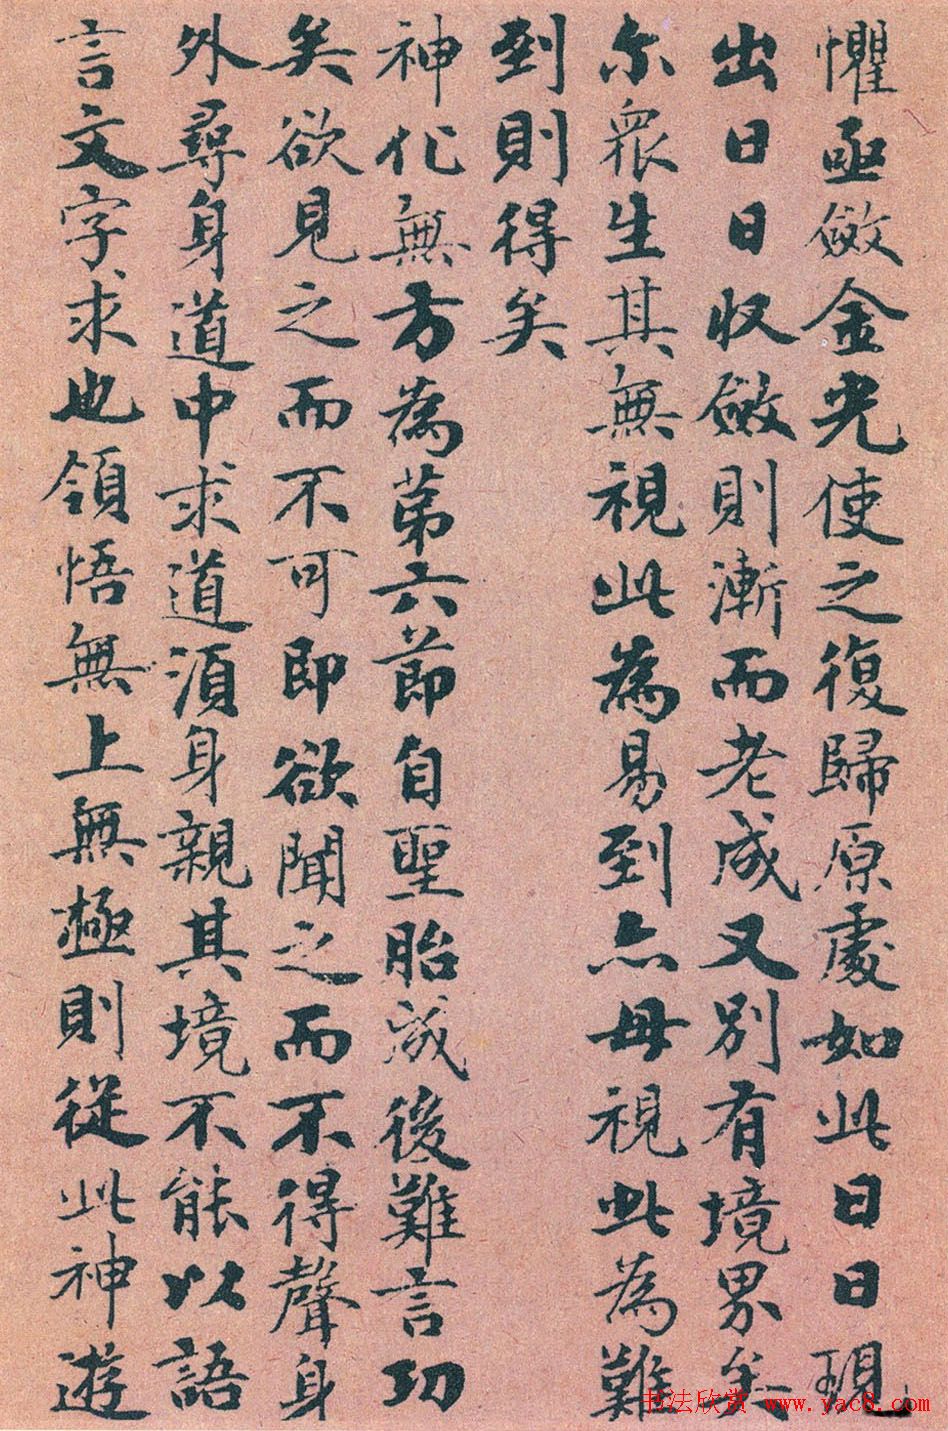 懼亟斂金光使之復歸原處如此日日現
出日日收斂則漸而老成又別有境界矣
尔衆生其無視此為易到亦毋視此為難
到則得矣
神化無方為苐六節自聖胎成後難言功
矣欲見之而不可即欲聞之而不得聲身
外尋身道中求道須身親其境不能以語
言文字求也領悟無上無極則從此神遊
书法欣赏 www.yac8.com